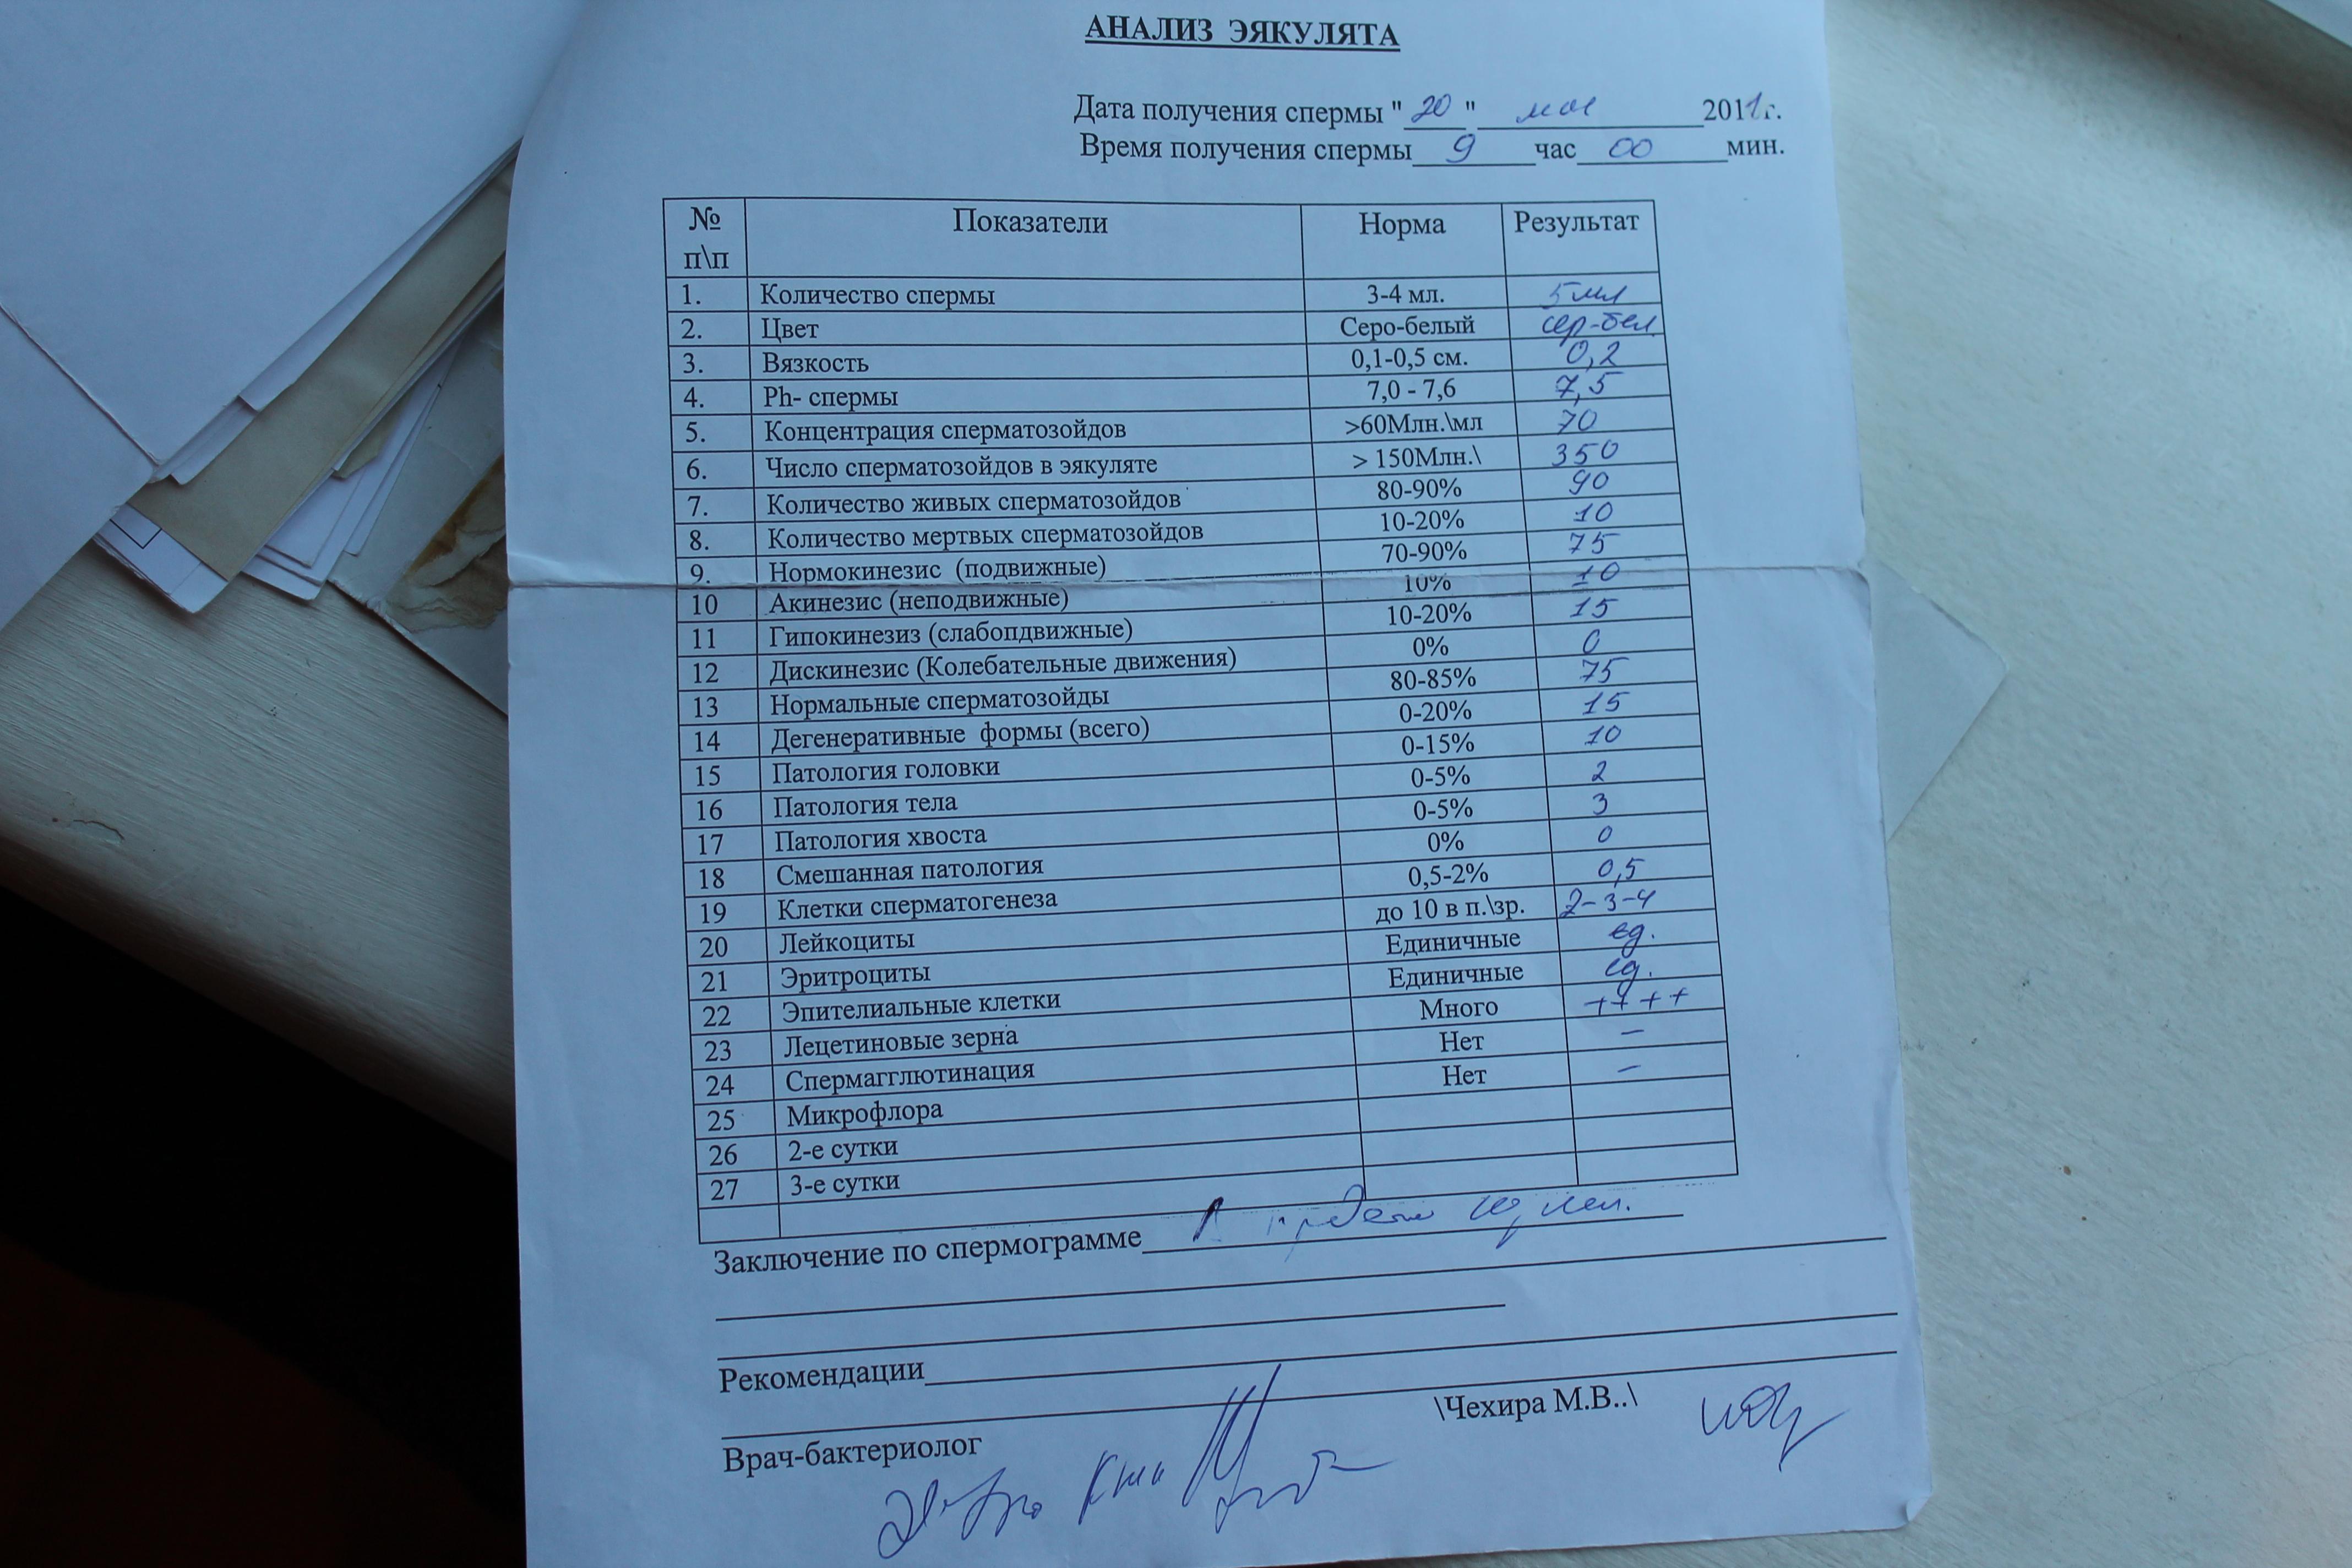 АНАЛИЗ ЭЯКУЛЯТА
Дата получения спермы "20" мая 2011г.
Время получения спермы 9 час 00 мин.
№ п\п Показатели Норма Результат
1. Количество спермы 3-4 мл. 5мл
2. Цвет Серо-белый сер-бел
3. Вязкость 0,1-0,5 см. 0,2
4. Ph- спермы 7,0 - 7,6 7,5
5. Концентрация сперматозойдов >60Млн.\мл 70
6. Число сперматозойдов в эякуляте > 150Млн.\ 350
7. Количество живых сперматозойдов 80-90% 90
8. Количество мертвых сперматозойдов 10-20% 10
9. Нормокинезис (подвижные) 70-90% 75
10 Акинезис (неподвижные) 10% 10
11 Гипокинезиз (слабопдвижные) 10-20% 15
12 Дискинезис (Колебательные движения) 0% 0
13 Нормальные сперматозойды 80-85% 75
14 Дегенеративные формы (всего) 0-20% 15
15 Патология головки 0-15% 10
16 Патология тела 0-5% 2
17 Патология хвоста 0-5% 3
18 Смешанная патология 0% 0
19 Клетки сперматогенеза 0,5-2% 0,5
20 Лейкоциты до 10 в п.\зр. 2-3-4
21 Эритроциты Единичные ед.
22 Эпителиальные клетки Единичные ед.
23 Лецетиновые зерна Много ++++
24 Спермагглютинация Нет –
25 Микрофлора Нет –
26 2-е сутки
27 3-е сутки
Заключение по спермограмме
Рекомендации
Врач-бактериолог \Чехира М.В..\